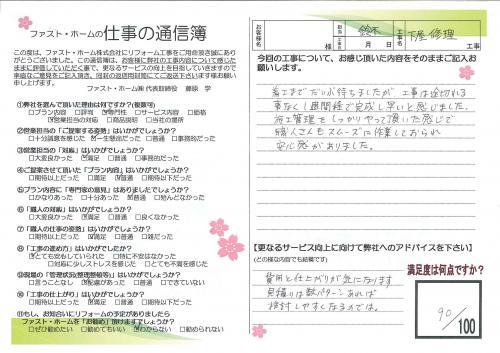 ファスト・ホームの仕事の通信簿
この度は、ファスト・ホーム株式会社にリフォーム工事をご用命頂き誠にあり
がとうございました。この通信簿は、お客様に弊社の工事内容について感じた
ままに評価していただく事で、更なるサービスの向上を目指していきますので
率直なご意見をご記入頂き、同封の返信用封筒にてご返送下さいます様お願い
申し上げます。
ファスト・ホーム㈱ 代表取締役 藤原 学
①弊社を選んで頂いた理由は何ですか？(複数可)
□プラン内容 □評判 □専門性 □サービス内容 □価格
□営業担当の対応 □商品説明 □当社の雰囲
②営業担当の「ご提案する姿勢」はいかがでしょうか？
□十分誠意を感じた □一生懸命だった □普通 □事務的だった
③営業担当の「対応」はいかがでしょうか？
□大変良かった □満足 □普通 □事務的だった
④ご提案させて頂いた「プラン内容」はいかがでしょうか？
□期待以上だった □満足 □普通 □期待以下だった
⑤プラン内容に「専門家の意見」はありましたでしょうか？
□かなりあった □十分あった □普通 □殆んどなかった
⑥「職人の対応」はいかがでしょうか？
□大変良かった □満足 □普通 □良くなかった
⑦「職人の仕事の姿勢」はいかがでしょうか？
□期待以上だった □満足 □普通 □雑だった
⑧「工事の進め方」はいかがでしたか？
□とても安心していられた □特に不安はなかった
□対応に少しストレスを感じた □とても不満を感じた
⑨現場の「管理状況(整理整頓等)」はいかがでしょうか？
□言うことなし □配慮があった □普通 □できていない
⑩「工事の仕上がり」はいかがでしょうか？
□期待以上だった □満足 □普通 □期待以下だった
⑪もし、お知合いにリフォームの予定がありましたら
ファスト・ホームを「お勧め」頂けますでしょうか？
□ぜひ勧めたい □勧めてもいい □わからない □勧められない
お客様名
様
担当 鈴木
工事 月 日
工事名 下屋修理
工事
今回の工事について、お感じ頂いた内容をそのままご記入お
願いします。
着工までだいぶ待ちましたが、工事は途切れる
事なく1週間程で完成し早いと感じました。
施工管理もしっかりやって頂いた感じで
職人さんもスムーズに作業しておられ
安心感がありました。
【更なるサービス向上に向けて弊社へのアドバイスを下さい】
(どの様な内容でも結構です)
費用と仕上がりが気になります
見積りは数パターンあれば
検討しやすくなるのでは。
満足度は何点ですか？
90/100